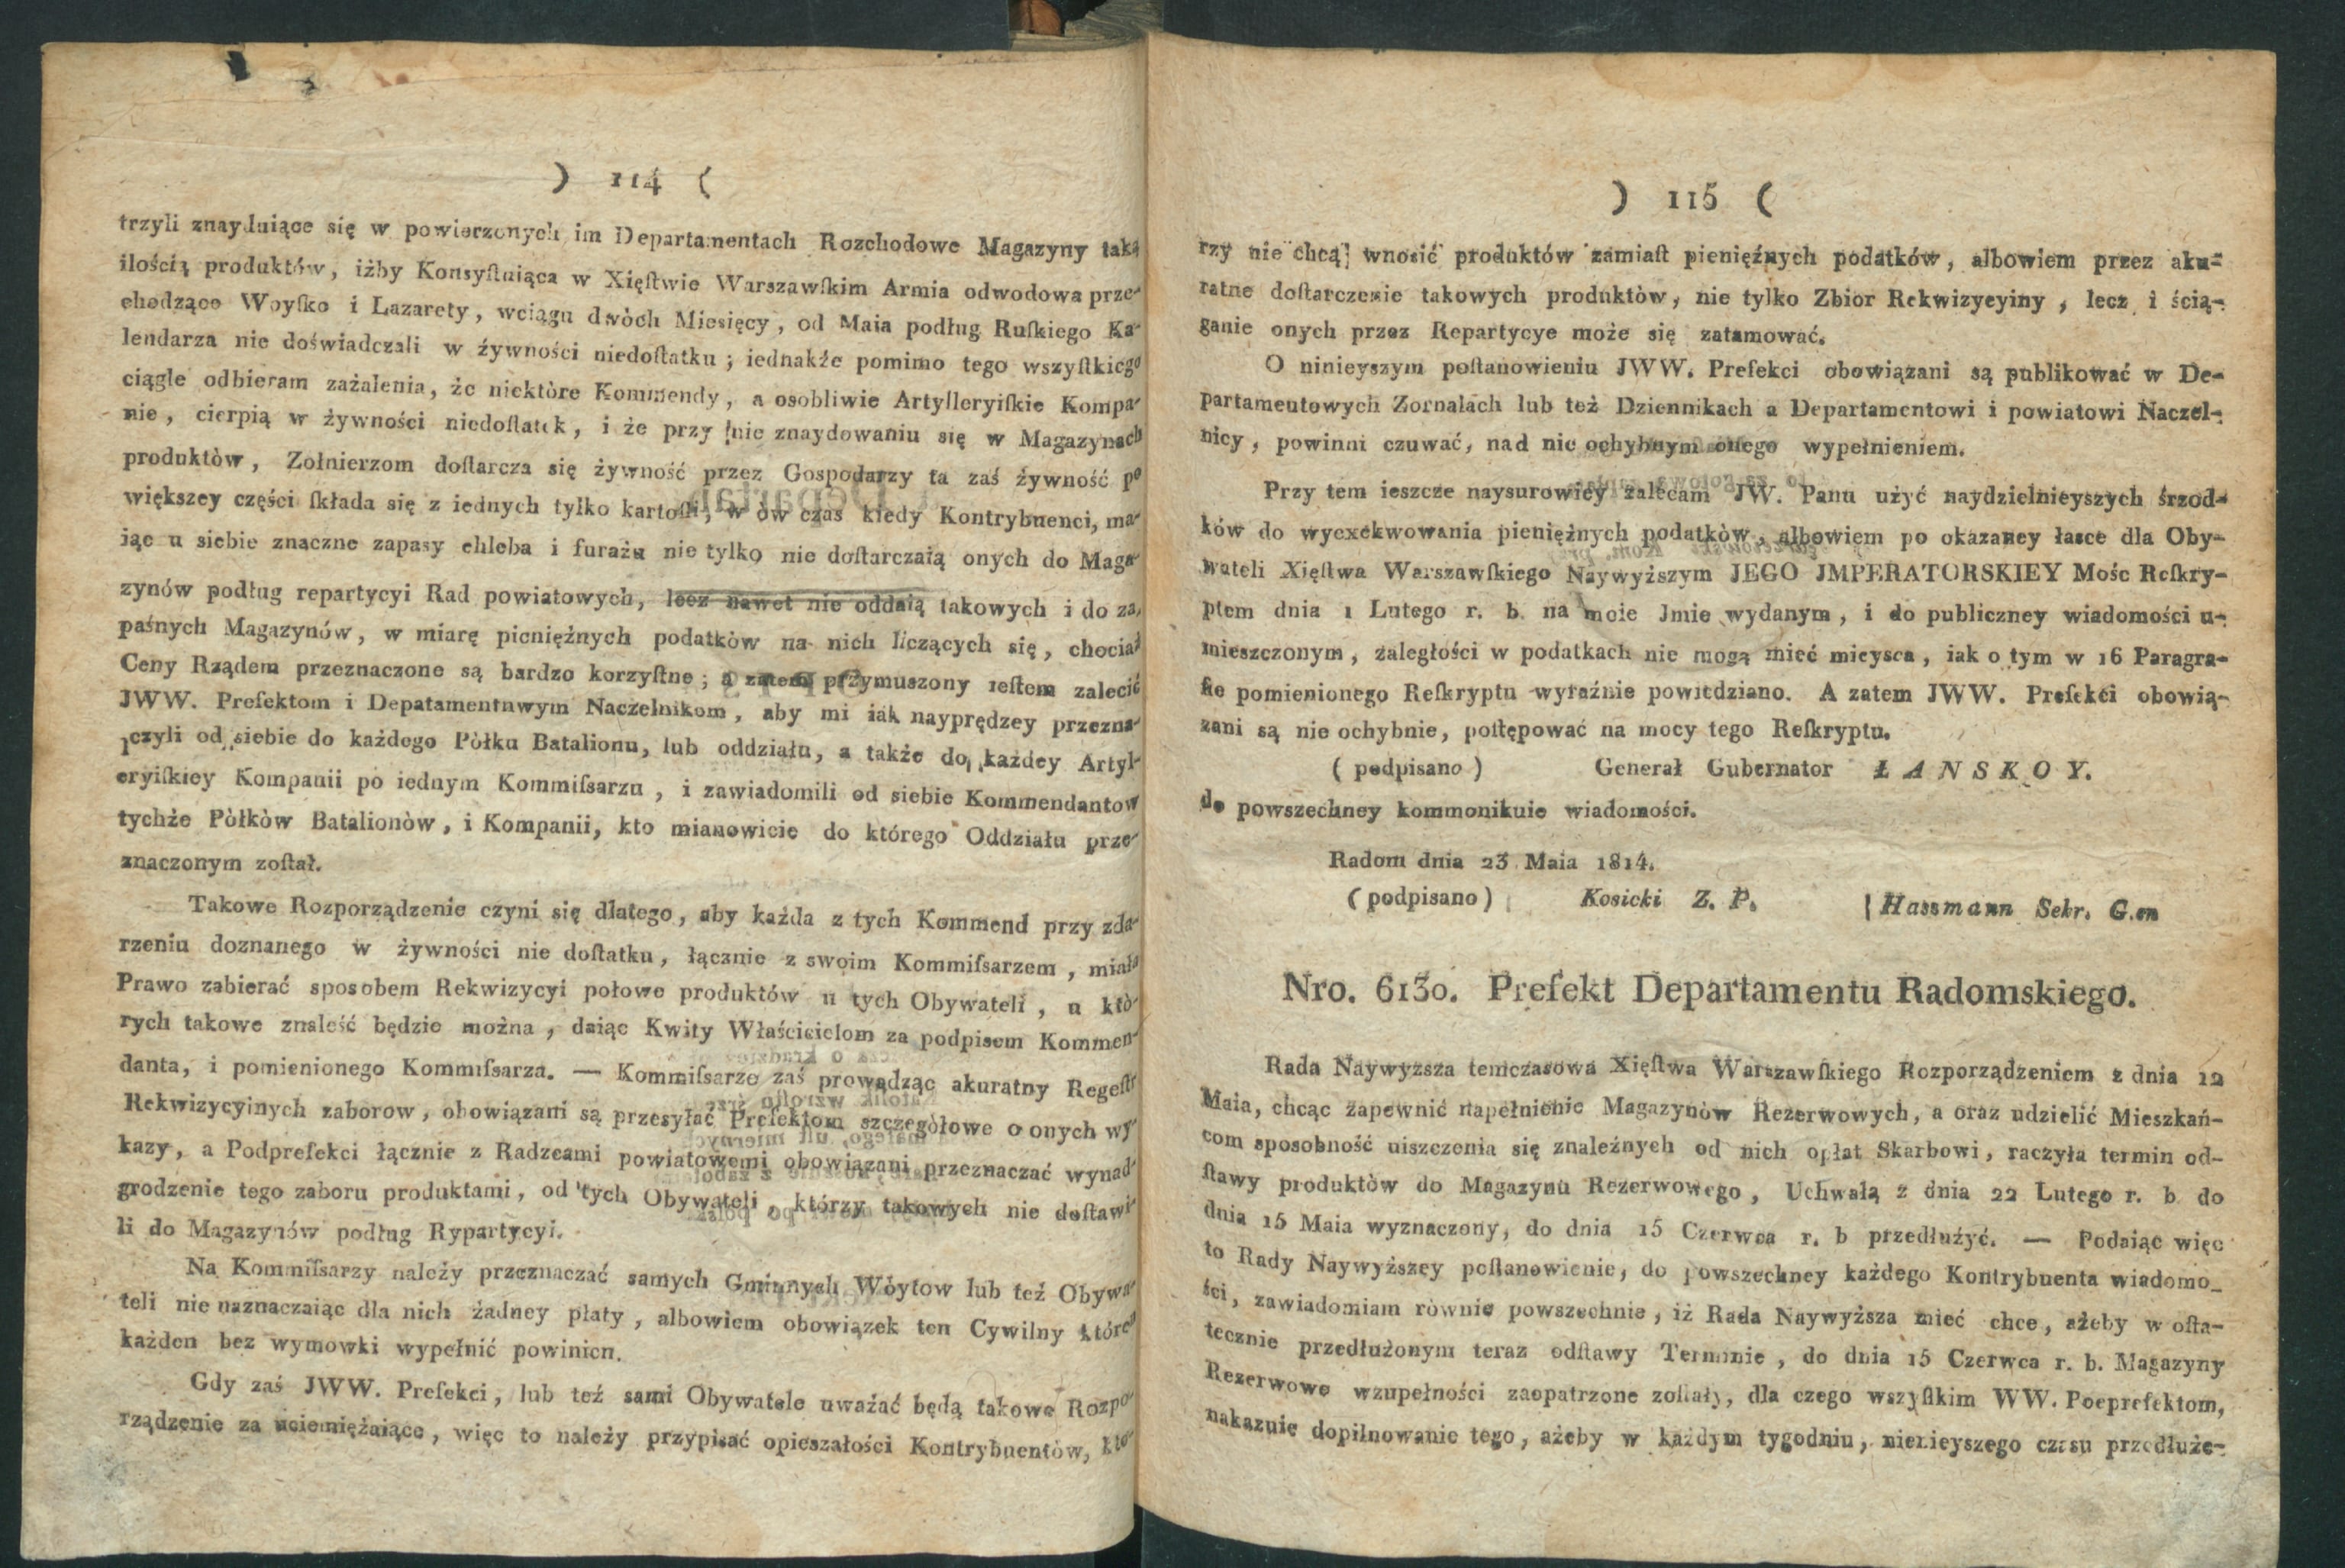 ) 114 (
trzyli znayduiące się w powierzonych im Departamentach Rozchodowe Magazyny taką
ilością produktów, iżby Konsyſtuiąca w Xięſtwie Warszawſkim Armia odwodowa prze-
chodzące Woyſko i Lazarety, wciągu dwòch Miesięcy, od Maia podług Ruſkiego Ka-
lendarza nie doświadczali w żywności niedoſtatku; iednakże pomimo tego wszyſtkiego
ciągle odbieram zażalenia, że niektòre Kommendy, a osobliwie Artylleryiſkie Kompa-
nie, cierpią w żywności niedoſtatek, i że przy nie znaydowaniu się w Magazynach
produktòw, Zołnierzom doſtarcza się żywność przez Gospodarzy ta zaś żywność po
większey części ſkłada się z iednych tylko kartofli, w ów czas kiedy Kontrybuenci, ma-
iąc u siebie znaczne zapasy chleba i furażu nie tylko nie doſtarczaią onych do Maga-
zynów podług repartycyi Rad powiatowych, lecz nawet nie oddaią takowych i do za-
paśnych Magazynów, w miarę pieniężnych podatkòw na nich liczących się, chociaż
Ceny Rządem przeznaczone są bardzo korzyſtne; a zatem przymuszony ieſtem zalecić
JWW. Prefektom i Depatamentnwym Naczelnikom, aby mi iak nayprędzey przezna-
czyli od siebie do każdego Pòłku Batalionu, lub oddziału, a także do każdey Artyl-
eryiſkiey Kompanii po iednym Kommiſsarzu, i zawiadomili od siebie Kommendantow
tychże Pòłkòw Batalionòw, i Kompanii, kto mianowicie do którego Oddziału prze-
znaczonym zoſtał.
Takowe Rozporządzenie czyni się dlatego, aby każda z tych Kommend przy zda-
rzeniu doznanego w żywności nie doſtatku, łącznie z swoim Kommiſsarzem, miała
Prawo zabierać sposobem Rekwizycyi połowe produktów u tych Obywateli, u któ-
rych takowe znaleść będzie można, daiąc Kwity Właścicielom za podpisem Kommen-
danta, i pomienionego Kommiſsarza. — Kommiſsarze zaś prowadząc akuratny Regeſtr
Rekwizycyinych zaborow, obowiązani są przesyłać Prefektom szczegòłowe o onych wy-
kazy, a Podprefekci łącznie z Radzcami powiatowemi obowiązani przeznaczać wynad-
grodzenie tego zaboru produktami, od tych Obywateli, którzy takowych nie doſtawi-
li do Magazynów podług Rypartycyi.
Na Kommiſsarzy należy przeznaczać samych Gminnych Wòytow lub też Obywa-
teli nie naznaczaiąc dla nich żadney płaty, albowiem obowiązek ten Cywilny które
każden bez wymowki wypełnić powinien.
Gdy zaś JWW. Prefekci, lub też sami Obywatele uważać będą takowe Rozpo-
rządzenie za uciemiężaiące, więc to należy przypisać opieszałości Kontrybuentòw, kto-
) 115 (
rzy nie chcą wnosić produktów zamiaſt pieniężnych podatków, albowiem przez aku-
ratne doſtarczenie takowych produktòw, nie tylko Zbior Rekwizycyiny, lecz i ścią-
ganie onych przez Repartycye może się zatamować.
O ninieyszym poſtanowieniu JWW. Prefekci obowiązani są publikować w De-
partamentowych Zornalach lub też Dziennikach a Departamentowi i powiatowi Naczel-
nicy, powinni czuwać, nad nie ochybnym onego wypełnieniem.
Przy tem ieszcze naysurowiey zalecam JW. Panu użyć naydzielnieyszych śrzod-
ków do wyexekwowania pieniężnych podatkòw, albowiem po okazaney łasce dla Oby-
wateli Xięſtwa Warszawſkiego Naywyższym JEGO JMPERATORSKIEY Mośc Reſkry-
ptem dnia 1 Lutego r. b. na moie Jmie wydanym, i do publiczney wiadomości u-
mieszczonym, zaległości w podatkach nie mogą mieć mieysca, iak o tym w 16 Paragra-
fie pomienionego Reſkryptu wyraźnie powiedziano. A zatem JWW. Prefekci obowią-
zani są nie ochybnie, poſtępować na mocy tego Reſkryptu.
( podpisano ) Generał Gubernator ŁANSKOY.
do powszechney kommonikuie wiadomości.
Radom dnia 23 Maia 1814.
( podpisano ) Kosicki Z. P. Hassmann Sekr. G.en
Nro. 6130. Prefekt Departamentu Radomskiego.
Rada Naywyższa temczasowa Xięſtwa Warszawſkiego Rozporządzeniem z dnia 12
Maia, chcąc zapewnić napełnienie Magazynòw Rezerwowych, a oraz udzielić Mieszkań-
com sposobność uiszczenia się znależnych od nich opłat Skarbowi, raczyła termin od-
ſtawy produktòw do Magazynu Rezerwowego, Uchwałą z dnia 22 Lutego r. b. do
dnia 15 Maia wyznaczony, do dnia 15 Czerwca r. b przedłużyć. — Podaiąc więc
to Rady Naywyższey poſtanowienie, do powszechney każdego Kontrybuenta wiadomo_
ści, zawiadomiam równie powszechnie, iż Rada Naywyższa mieć chce, ażeby w oſta-
tecznie przedłużonym teraz odſtawy Terminie, do dnia 15 Czerwca r. b. Magazyny
Rezerwowe wzupełności zaopatrzone zoſtały, dla czego wszyſtkim WW. Poeprefektom,
nakazuię dopilnowanie tego, ażeby w każdym tygodniu, ninieyszego czasu przedłuże-